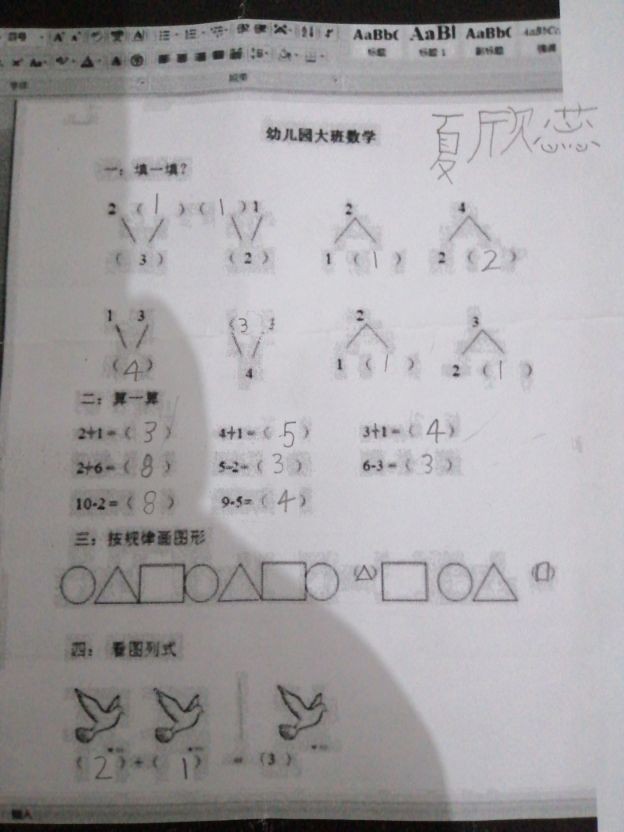 AaBbC AaBl AaBbC AaBbC
标题 标题 1 副标题 强调
幼儿园大班数学 夏欣蕊
一：填一填？
2 （1）（1）1 2 4
（3） （2） 1（1） 2（2）
1 3 （3 2 3
（4） 4 1（1） 2（1）
二：算一算
2+1=（3） 4+1=（5） 3+1=（4）
2+6=（8） 5-2=（3） 6-3=（3）
10-2=（8） 9-5=（4）
三：按规律画图形
四：看图列式
（2）+（1） =（3）
插入